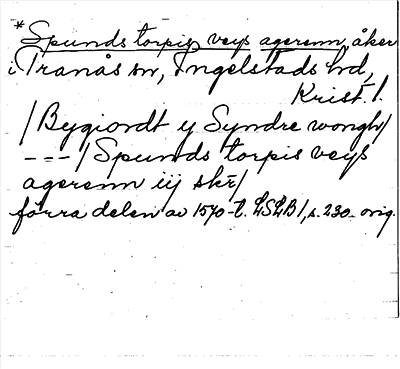 *Spunds torpis veys agerenn, åker
i Tranås sn, Ingelstads hd,
Krist. l.
/Bygiordt y Syndre wongh/
---/Spunds torpis veys
agerenn iij skr/
förra delen av 1570-t. LSLB 1, s. 230 orig.